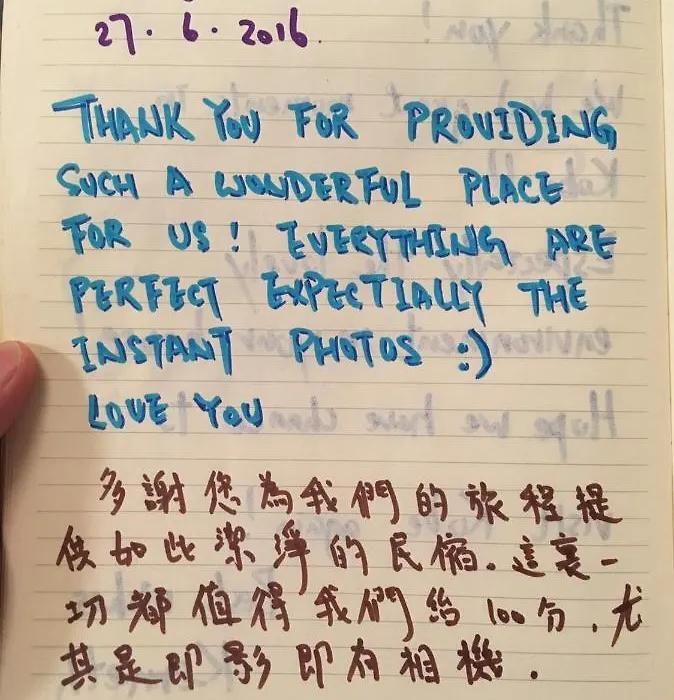 27.6.2016.
THANK YOU FOR PROVIDING
SUCH A WONDERFUL PLACE
FOR US! EVERYTHING ARE
PERFECT EXPECTIALLY THE
INSTANT PHOTOS :)
LOVE YOU
多謝您為我們的旅程提
供如此潔淨的民宿.這裏一
切都值得我們給100分,尤
其是即影即有相機.